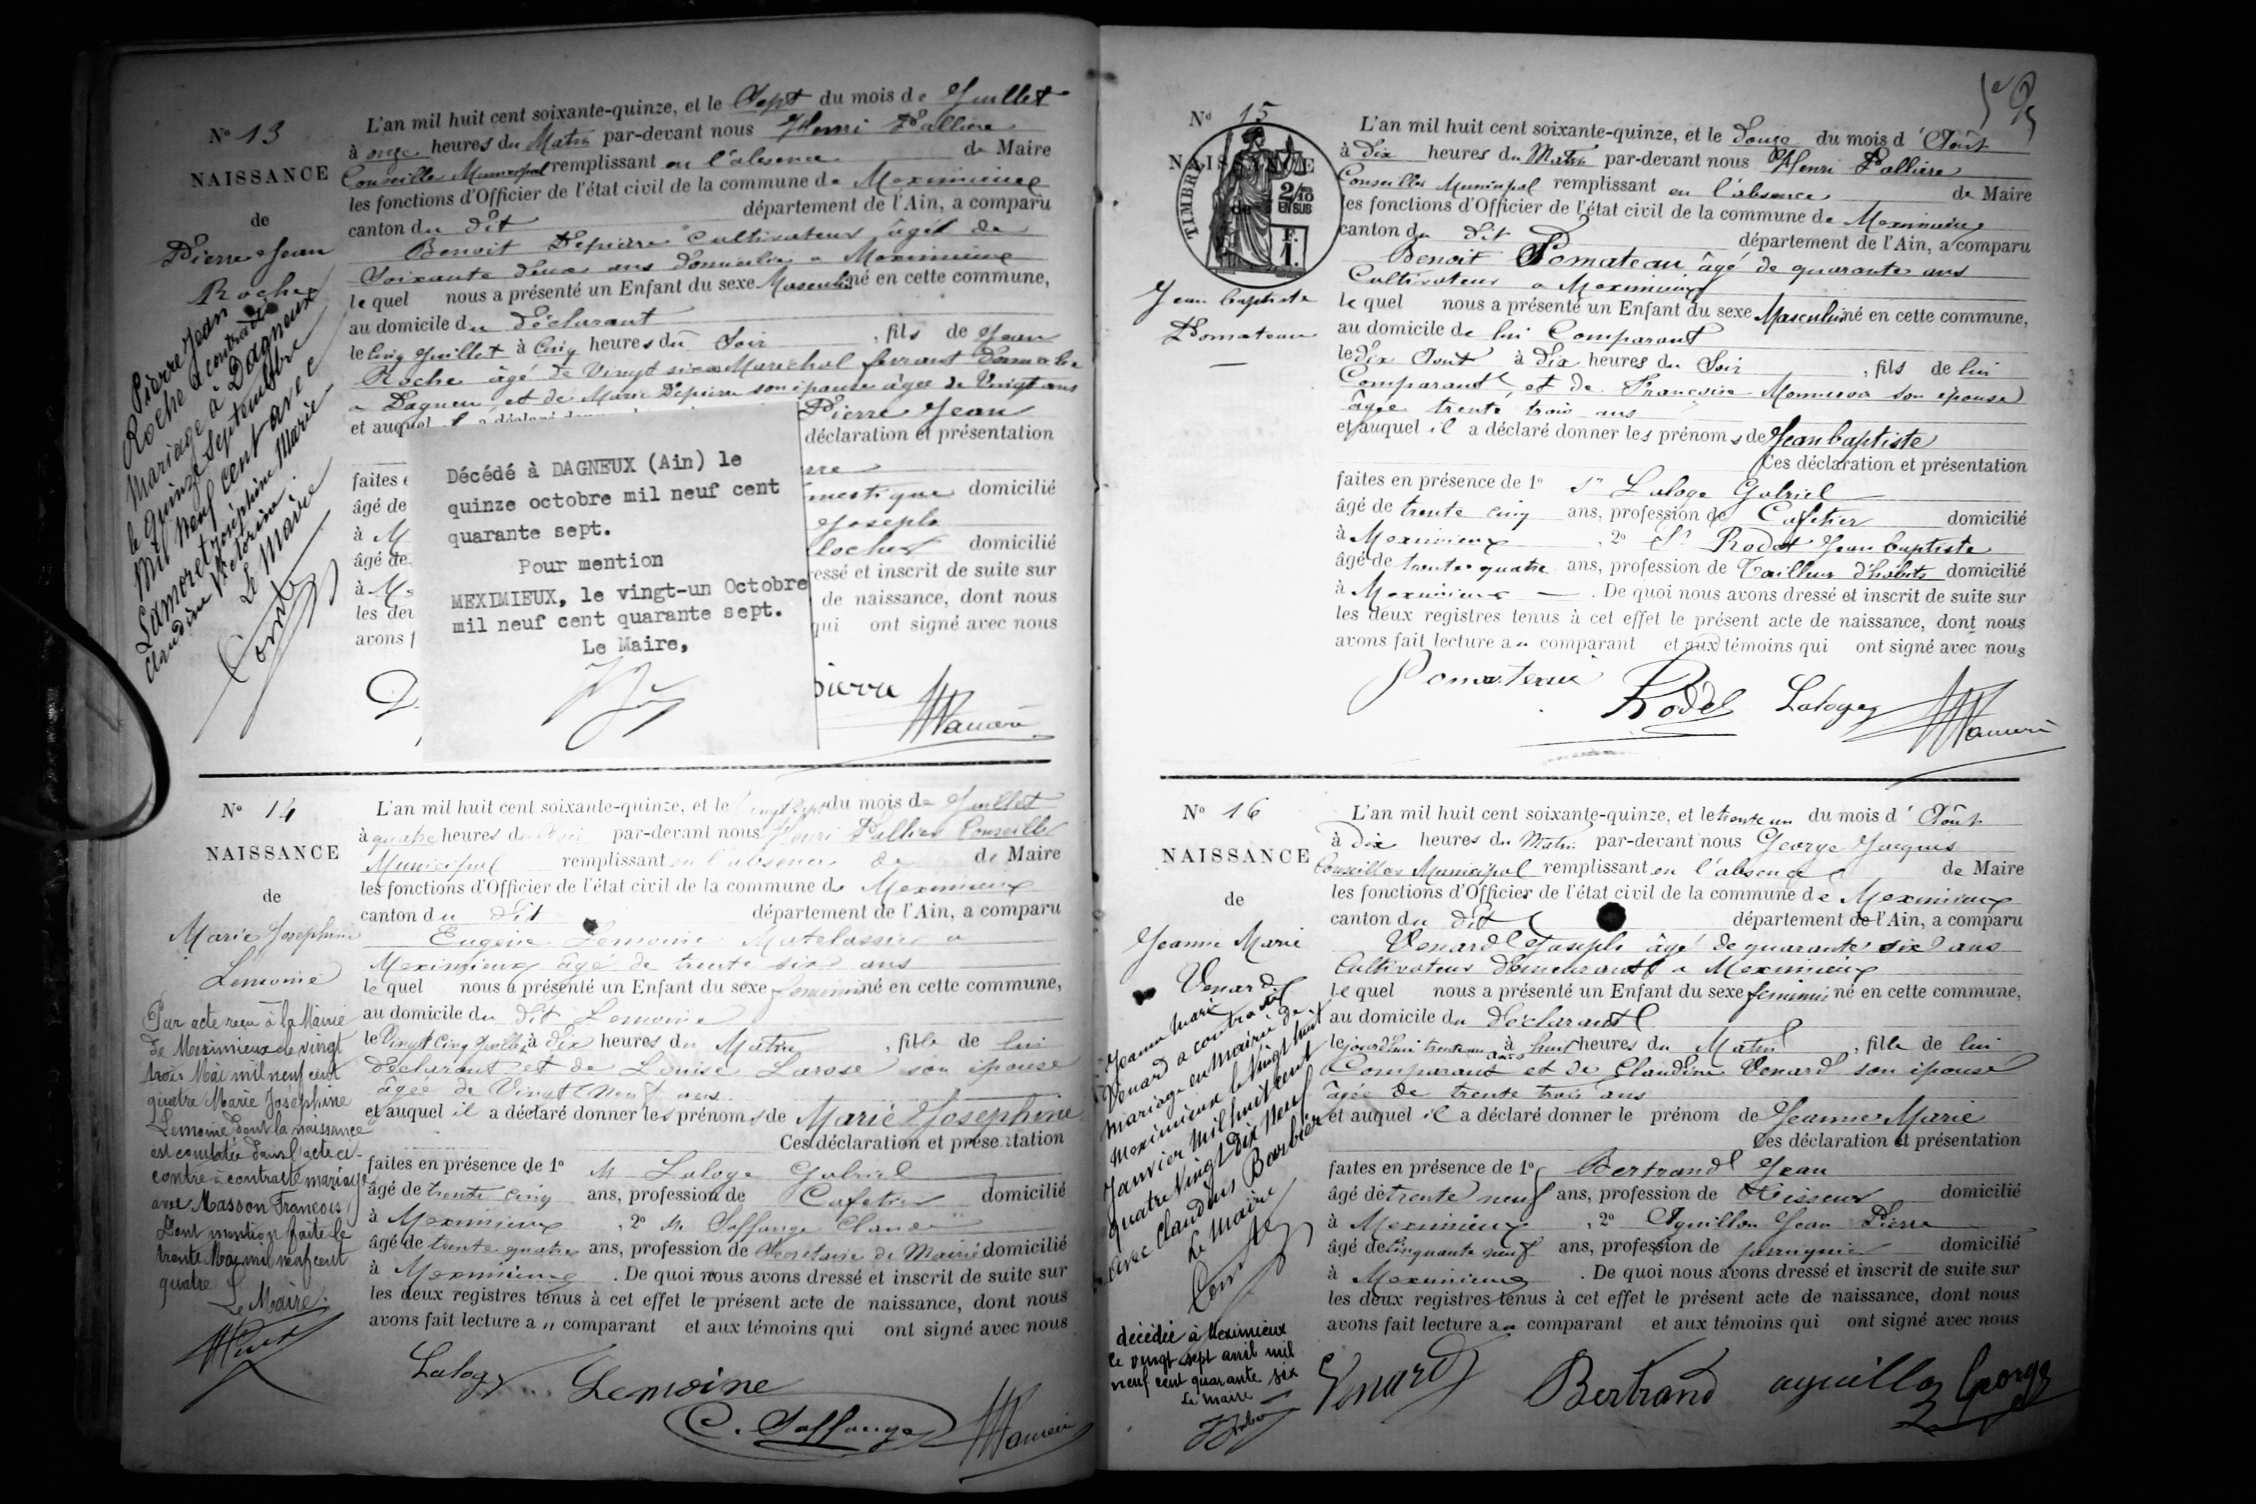 N° 13
NAISSANCE
de
Pierre Jean
Roche
Pierre Jean
Roche a contracté
Mariage à Dagneux
le quinze Septembre
Mil neuf cent avec
Lamoret Joséphine Marie
Claudine Victorine.
Le Maire
L'an mil huit cent soixante-quinze, et le Sept du mois de Juillet
à onze heures du Matin par-devant nous Henri Pallière
Conseille Municipal remplissant en l'absence de Maire
les fonctions d'Officier de l'état civil de la commune de Meximieux
canton du dit département de l'Ain, a comparu
Benoit Depierre Cultivateur âgé de
Soixante deux ans domicilié a Meximieux
lequel nous a présenté un Enfant du sexe Masculin né en cette commune,
au domicile du déclarant
le Cinq Juillet à Cinq heures du Soir , fils de Jean
Roche âgé de Vingt six ans Maréchal ferrant
a Dagneux et de Marie Depierre son épouse âgée de Vingt ans
et auquel il a déclaré Pierre Jean
déclaration et présentation
faites
âgé de domicilié
à M Joseph
âgé de domicilié
à M ressé et inscrit de suite sur
les deu de naissance, dont nous
avons f qui ont signé avec nous
Décédé à DAGNEUX (Ain) le
quinze octobre mil neuf cent
quarante sept.
Pour mention
MEXIMIEUX, le vingt-un Octobre
mil neuf cent quarante sept.
Le Maire,
pierre
N° 14
NAISSANCE
de
Marie Josephine
Lemoine
Par acte reçu à la Mairie
de Meximieux le vingt
trois Mai mil neuf cent
quatre Marie Josephine
Lemoine dont la naissance
est constatée dans l'acte ci-
contre a contracté mariage
avec Masson François
Dont mention faite le
trente Mai mil neuf cent
quatre
Le Maire
L'an mil huit cent soixante-quinze, et le vingt sept du mois de Juillet
à quatre heures du Soir par-devant nous Henri Pallière Conseille
Municipal remplissant en l'absence de de Maire
les fonctions d'Officier de l'état civil de la commune de Meximieux
canton du dit département de l'Ain, a comparu
Eugène Lemoine Matelassier a
Meximieux âgé de trente six ans
lequel nous a présenté un Enfant du sexe feminin né en cette commune,
au domicile du dit Lemoine
le Vingt Cinq Juillet à dix heures du Matin , fille de lui
déclarant et de Louise Larose son épouse
âgée de Vingt Neuf ans
et auquel il a déclaré donner les prénoms de Marie Josephine
Ces déclaration et présentation
faites en présence de 1° M Laloge Gabriel
âgé de trente cinq ans, profession de Cafetier domicilié
à Meximieux , 2° M. Soffange Claude
âgé de trente quatre ans, profession de Secrétaire de Mairie domicilié
à Meximieux . De quoi nous avons dressé et inscrit de suite sur
les deux registres tenus à cet effet le présent acte de naissance, dont nous
avons fait lecture au comparant et aux témoins qui ont signé avec nous
Laloge Lemoine
C. Soffange
N° 15
NAISSANCE
de
TIMBRE
2/10
EN SUS
F.
1.
Jean baptiste
Pomateau
L'an mil huit cent soixante-quinze, et le douze du mois d'Août
à dix heures du Matin par-devant nous Henri Pallière
Conseiller Municipal remplissant en l'absence de Maire
les fonctions d'Officier de l'état civil de la commune de Meximieux
canton du dit département de l'Ain, a comparu
Benoit Pomateau âgé de quarante ans
Cultivateur a Meximieux
lequel nous a présenté un Enfant du sexe Masculin né en cette commune,
au domicile de lui Comparant
le dix Aout à dix heures du Soir , fils de lui
Comparant et de Françoise son épouse
âgée trente trois ans
et auquel il a déclaré donner les prénoms de Jean baptiste
Ces déclaration et présentation
faites en présence de 1° Sr Laloge Gabriel
âgé de trente cinq ans, profession de Cafetier domicilié
à Meximieux , 2° Sr Rodet Jean baptiste
âgé de trente quatre ans, profession de Tailleur d'habits domicilié
à Meximieux — . De quoi nous avons dressé et inscrit de suite sur
les deux registres tenus à cet effet le présent acte de naissance, dont nous
avons fait lecture au comparant et aux témoins qui ont signé avec nous
Rodet Laloge
N° 16
NAISSANCE
de
Jeanne Marie
Venard
Jeanne Marie
Venard a contracté
mariage en mairie de
Meximieux le Vingt huit
Janvier Mil huit cent
quatre Vingt Dix Neuf
avec Claudius Barbier
Le Maire
décédée à Meximieux
le vingt sept avril mil
neuf cent quarante six
Le maire
L'an mil huit cent soixante-quinze, et le trente un du mois d'Août
à Dix heures du Matin par-devant nous George Jacques
Conseiller Municipal remplissant en l'absence de Maire
les fonctions d'Officier de l'état civil de la commune de Meximieux
canton du dit département de l'Ain, a comparu
Venard Joseph âgé de quarante six ans
Cultivateur demeurant a Meximieux
lequel nous a présenté un Enfant du sexe feminin né en cette commune,
au domicile du déclarant
le jourd'hui trente un août à huit heures du Matin , fille de lui
Comparant et de Claudine Venard son épouse
âgée de trente trois ans
et auquel il a déclaré donner le prénom de Jeanne Marie
Ces déclaration et présentation
faites en présence de 1° Bertrand Jean
âgé de trente neuf ans, profession de domicilié
à Meximieux , 2° Aguillon Jean Pierre
âgé de Cinquante neuf ans, profession de domicilié
à Meximieux . De quoi nous avons dressé et inscrit de suite sur
les deux registres tenus à cet effet le présent acte de naissance, dont nous
avons fait lecture au comparant et aux témoins qui ont signé avec nous
Venard Bertrand aguillon George